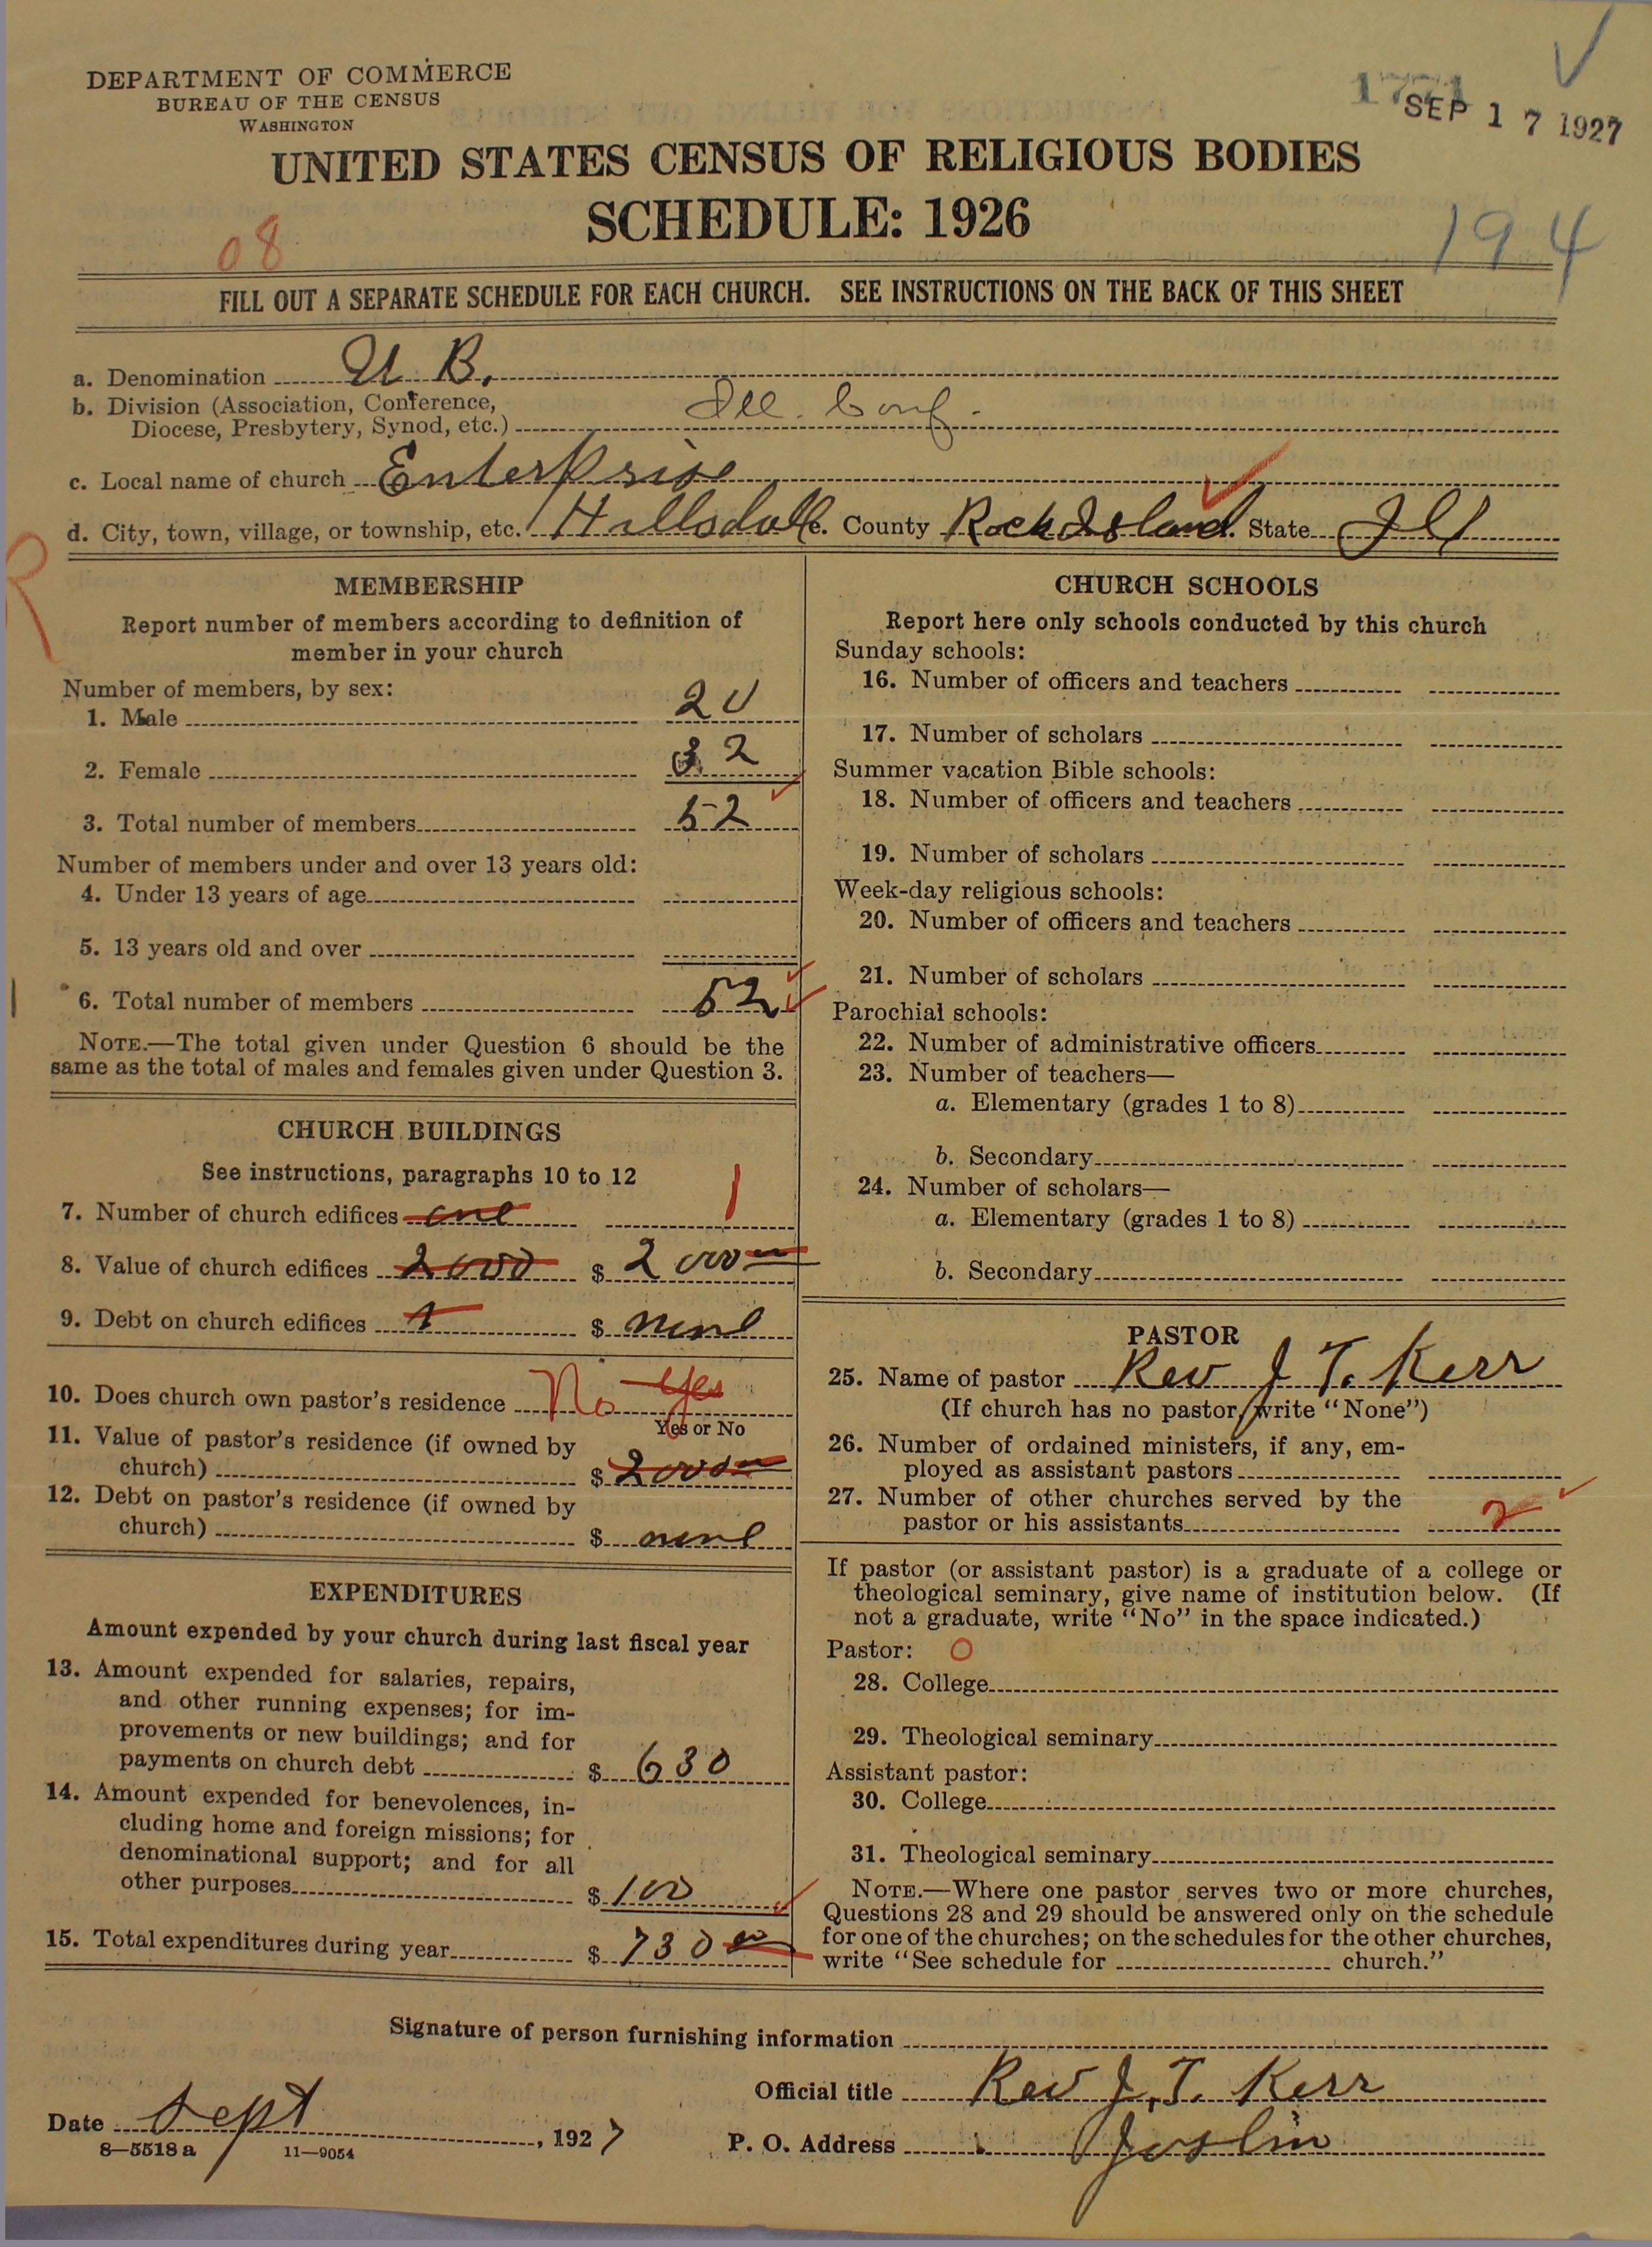 DEPARTMENT OF COMMERCE
BUREAU OF THE CENSUS
WASHINGTON
1771
SEP 17 1927
UNITED STATES CENSUS OF RELIGIOUS BODIES
SCHEDULE: 1926
08
194
FILL OUT A SEPARATE SCHEDULE FOR EACH CHURCH. SEE INSTRUCTIONS ON THE BACK OF THIS SHEET
a. Denomination U. B.
b. Division (Association, Conference,
Diocese, Presbytery, Synod, etc.) Ill. Conf.
c. Local name of church Enterprise
d. City, town, village, or township, etc. Hillsdale. County Rock Island. State Ill
R
MEMBERSHIP
Report number of members according to definition of
member in your church
Number of members, by sex:
1. Male 20
2. Female 32
3. Total number of members 52
Number of members under and over 13 years old:
4. Under 13 years of age
5. 13 years old and over
6. Total number of members 52
NOTE.—The total given under Question 6 should be the
same as the total of males and females given under Question 3.
CHURCH BUILDINGS
See instructions, paragraphs 10 to 12
7. Number of church edifices one 1
8. Value of church edifices 2000 $ 2000 00
9. Debt on church edifices $ none
10. Does church own pastor's residence No Yes
Yes or No
11. Value of pastor's residence (if owned by
church) $ 2000 00
12. Debt on pastor's residence (if owned by
church) $ none
EXPENDITURES
Amount expended by your church during last fiscal year
13. Amount expended for salaries, repairs,
and other running expenses; for im-
provements or new buildings; and for
payments on church debt $ 630
14. Amount expended for benevolences, in-
cluding home and foreign missions; for
denominational support; and for all
other purposes $ 100
15. Total expenditures during year $ 730 00
CHURCH SCHOOLS
Report here only schools conducted by this church
Sunday schools:
16. Number of officers and teachers
17. Number of scholars
Summer vacation Bible schools:
18. Number of officers and teachers
19. Number of scholars
Week-day religious schools:
20. Number of officers and teachers
21. Number of scholars
Parochial schools:
22. Number of administrative officers
23. Number of teachers—
a. Elementary (grades 1 to 8)
b. Secondary
24. Number of scholars—
a. Elementary (grades 1 to 8)
b. Secondary
PASTOR
25. Name of pastor Rev J. T. Kerr
(If church has no pastor, write "None")
26. Number of ordained ministers, if any, em-
ployed as assistant pastors
27. Number of other churches served by the
pastor or his assistants 2
If pastor (or assistant pastor) is a graduate of a college or
theological seminary, give name of institution below. (If
not a graduate, write "No" in the space indicated.)
Pastor: O
28. College
29. Theological seminary
Assistant pastor:
30. College
31. Theological seminary
NOTE.—Where one pastor serves two or more churches,
Questions 28 and 29 should be answered only on the schedule
for one of the churches; on the schedules for the other churches,
write "See schedule for church."
Signature of person furnishing information
Official title Rev J. T. Kerr
Date Sept, 1927
P. O. Address Joslin
8—5518 a 11—9054